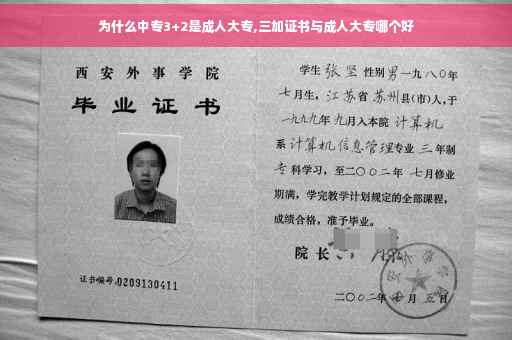 为什么中专3+2是成人大专,三加证书与成人大专哪个好
西安外事学院
毕业证书
证书编号:0209130411
学生 张坚 性别男 一九八〇年
七月生，江苏省苏州县(市)人,于
一九九九年九月入本院 计算机
系计算机信息管理专业 三年制
专科学习，至二〇〇二年 七月修业
期满，学完教学计划规定的全部课程，
成绩合格，准予毕业。
院长
二〇〇二年 月五日